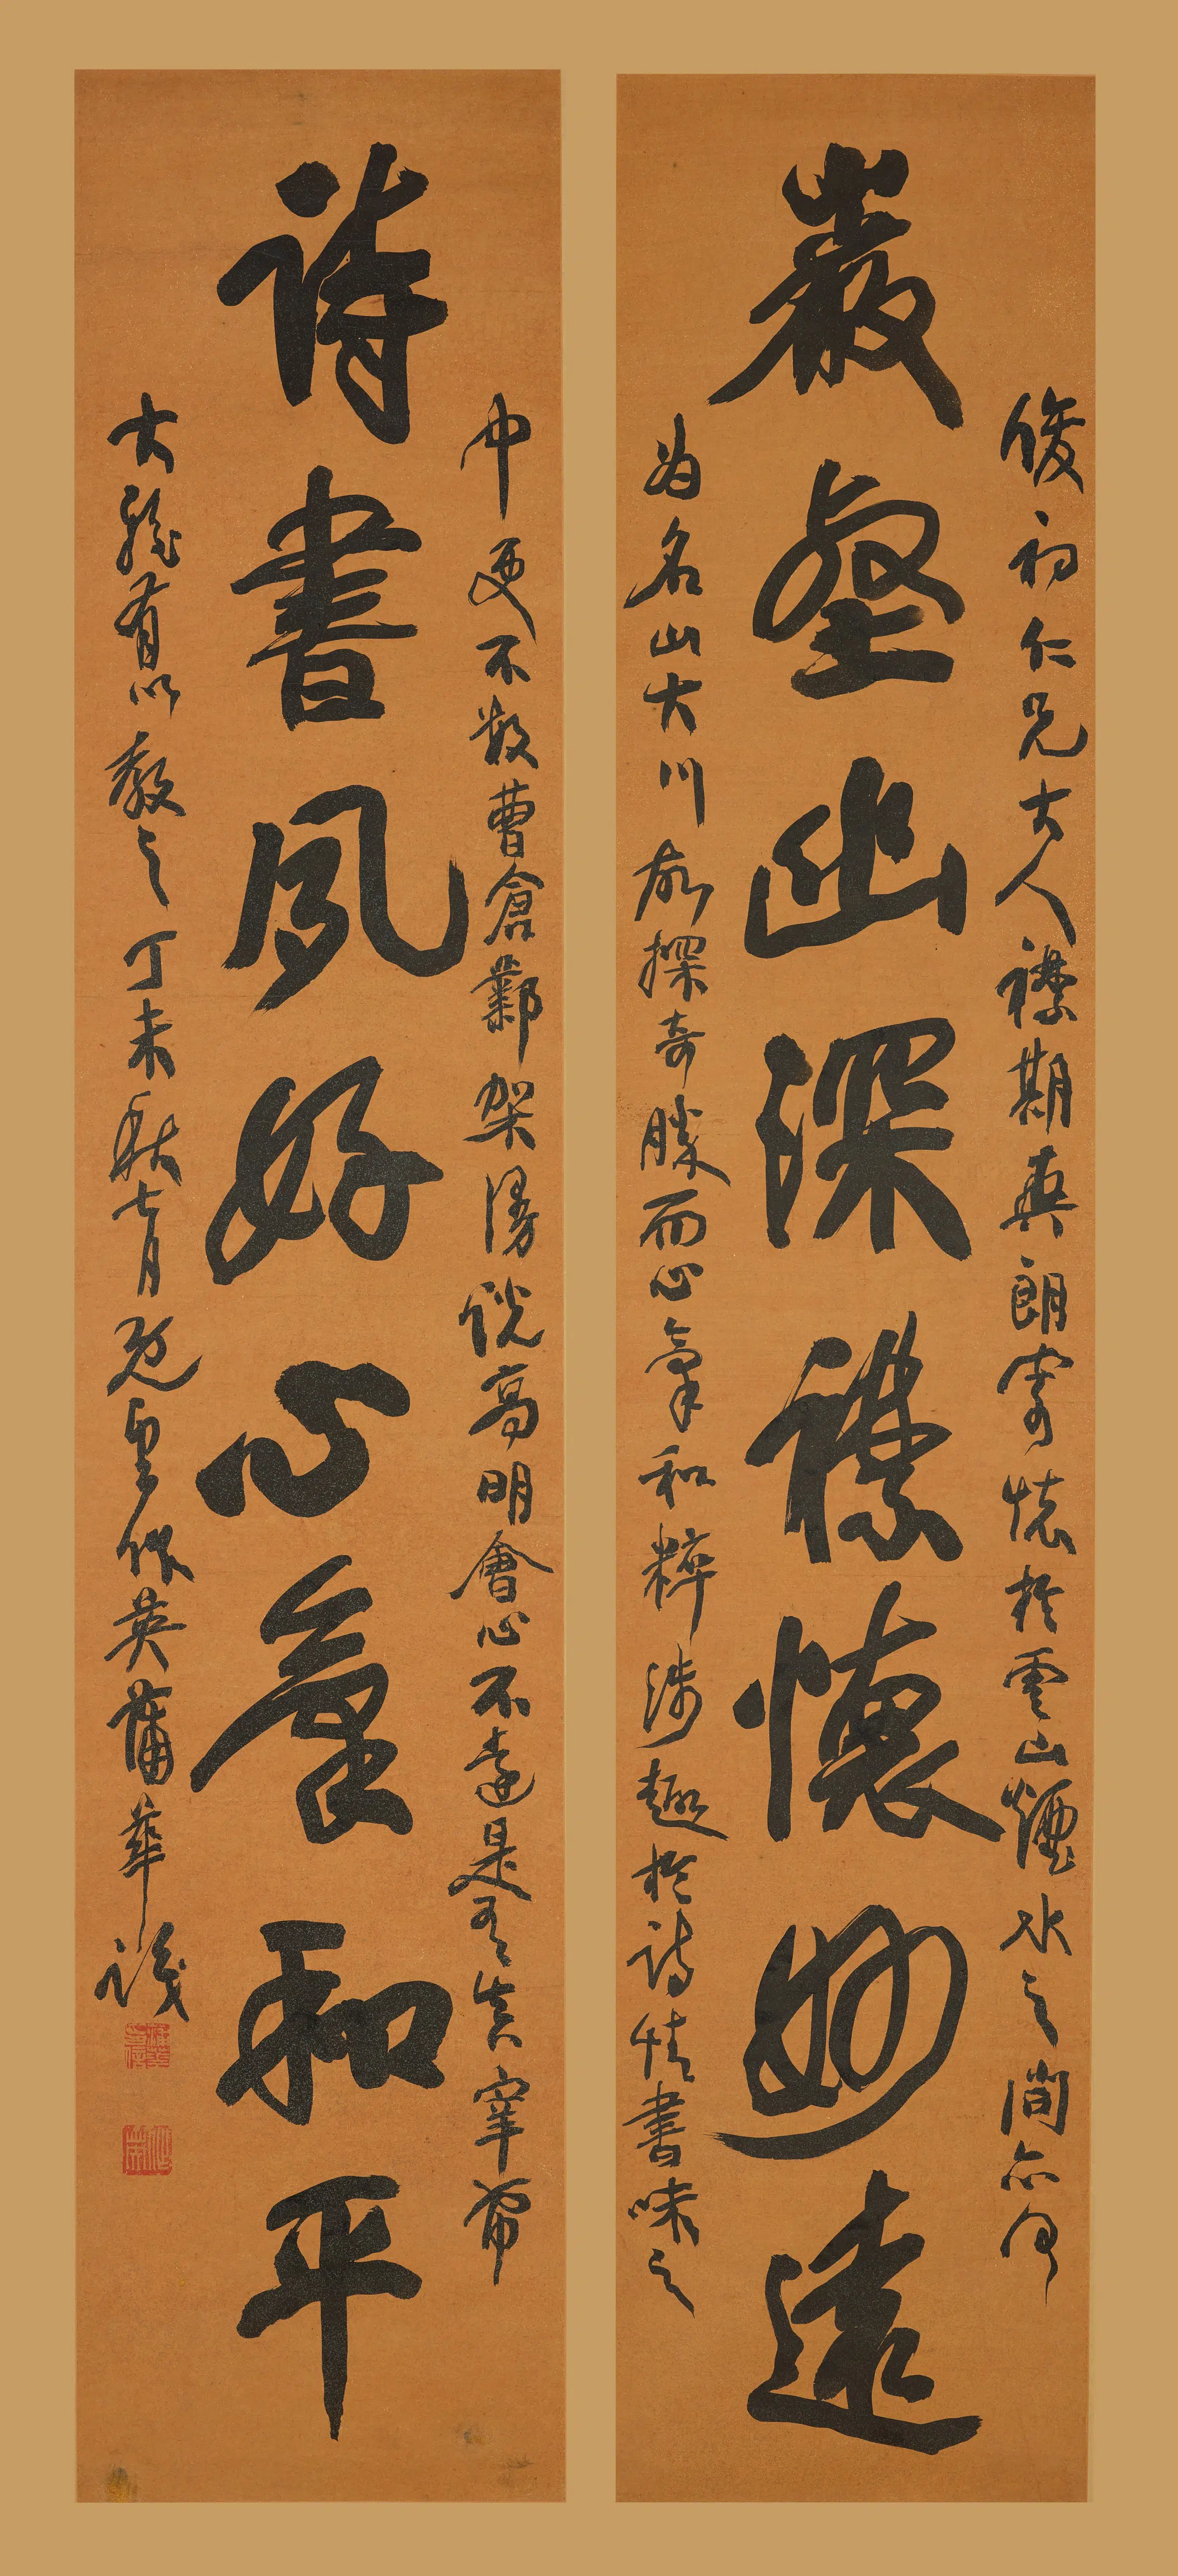 俊初仁兄大人襟期爽朗寄懷於雲山煙水之間亦何
巖壑幽深襟懷妙遠
為名山大川故探奇勝而心氣和粹涉趣於詩情書味之
中更不數曹倉鄴架漫說高明會心不遠是
詩書夙好心氣和平
大雅有以教之丁未秋七月既望作英蒲華識